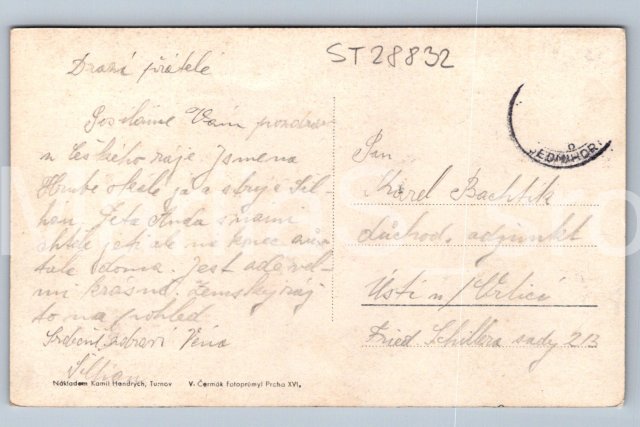 ST28832
Drazí přátelé
Posíláme Vám pozdrav
z Českého ráje. Jsme na
Hrubé Skále já a stryc
Teta Anda s námi
chtěla jet ale na konec zůs
tala doma. Jest zde vel
mi krásně. Zemský ráj
to na pohled
Srdečně zdraví Věra
Pan
Karel Bachtík
důchod. adjunkt
Ústí n/Orlicí
Fried. Schillera sady 213
Nákladem Kamil Hendrých, Turnov V. Čermák Fotoprůmysl Praha XVI.